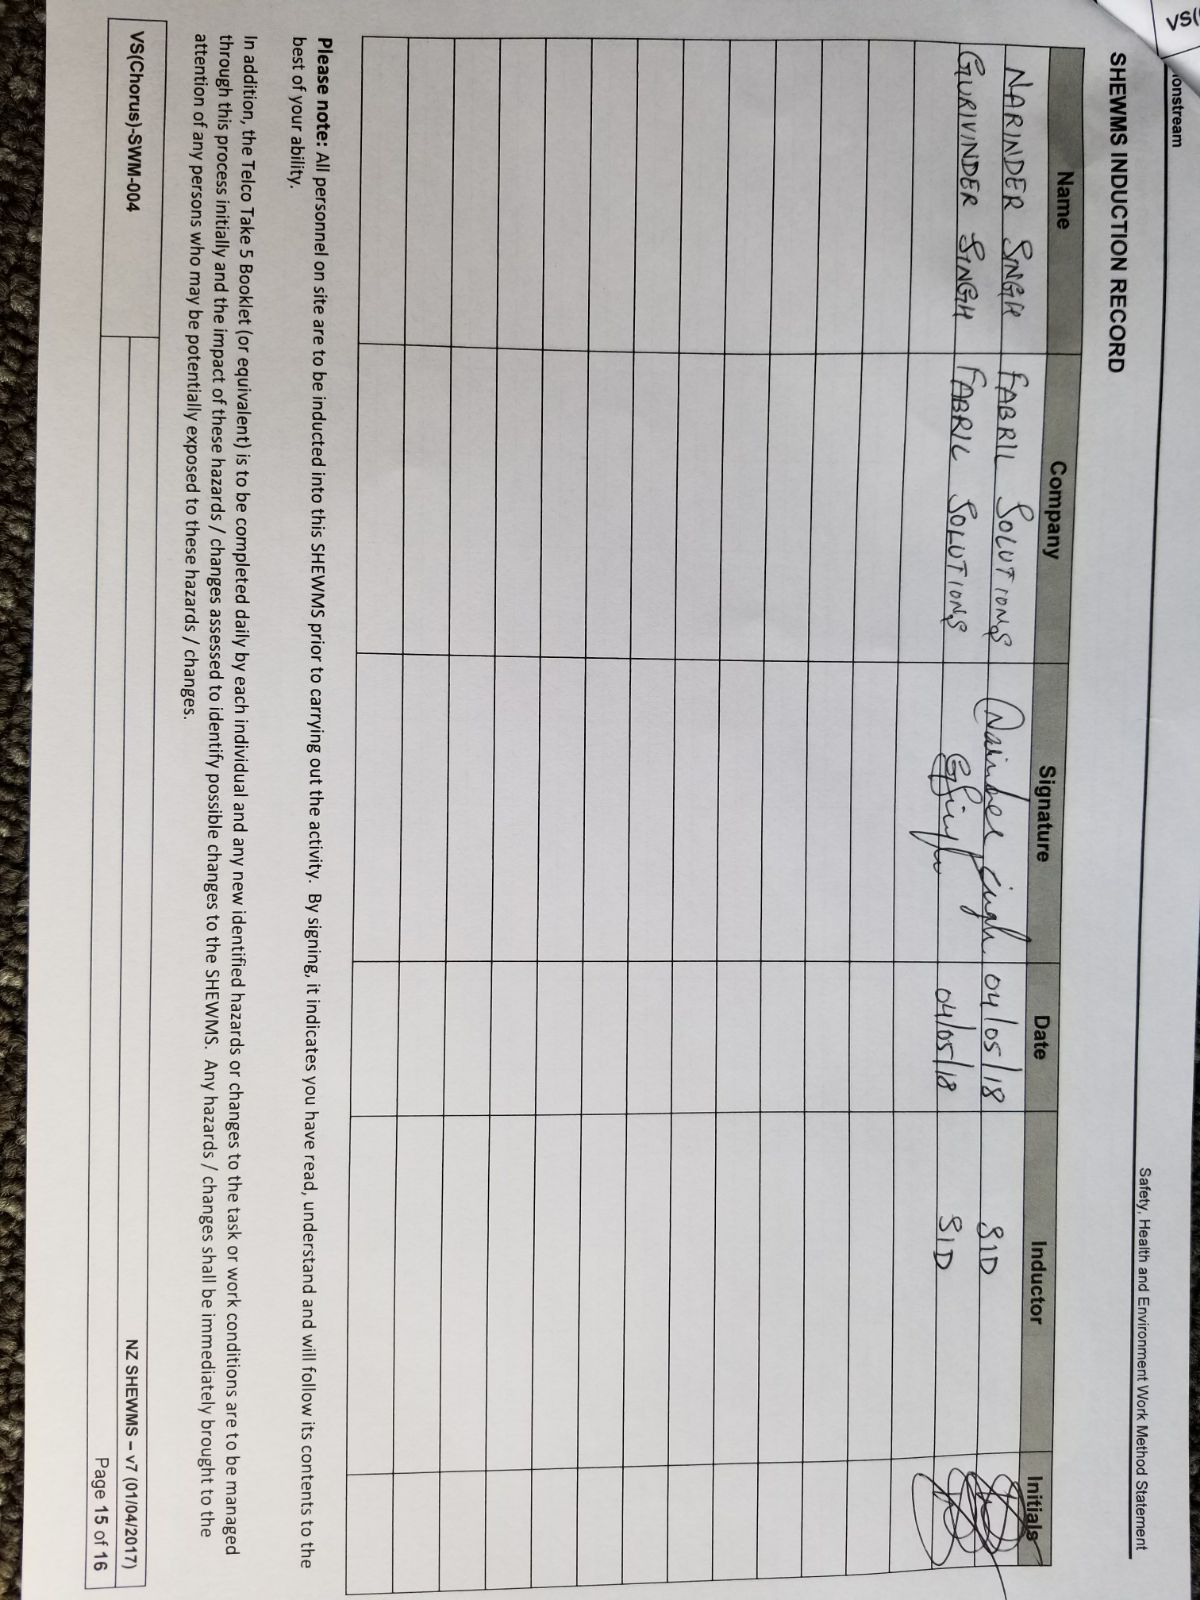 VS(
onstream
Safety, Health and Environment Work Method Statement
SHEWMS INDUCTION RECORD
Name Company Signature Date Inductor Initials
NARINDER SINGH FABRIL SOLUTIONS Narinder Singh 04/05/18 SID
GURIVINDER SINGH FABRIL SOLUTIONS GSingh 04/05/18 SID
Please note: All personnel on site are to be inducted into this SHEWMS prior to carrying out the activity. By signing, it indicates you have read, understand and will follow its contents to the
best of your ability.
In addition, the Telco Take 5 Booklet (or equivalent) is to be completed daily by each individual and any new identified hazards or changes to the task or work conditions are to be managed
through this process initially and the impact of these hazards / changes assessed to identify possible changes to the SHEWMS. Any hazards / changes shall be immediately brought to the
attention of any persons who may be potentially exposed to these hazards / changes.
VS(Chorus)-SWM-004
NZ SHEWMS – v7 (01/04/2017)
Page 15 of 16